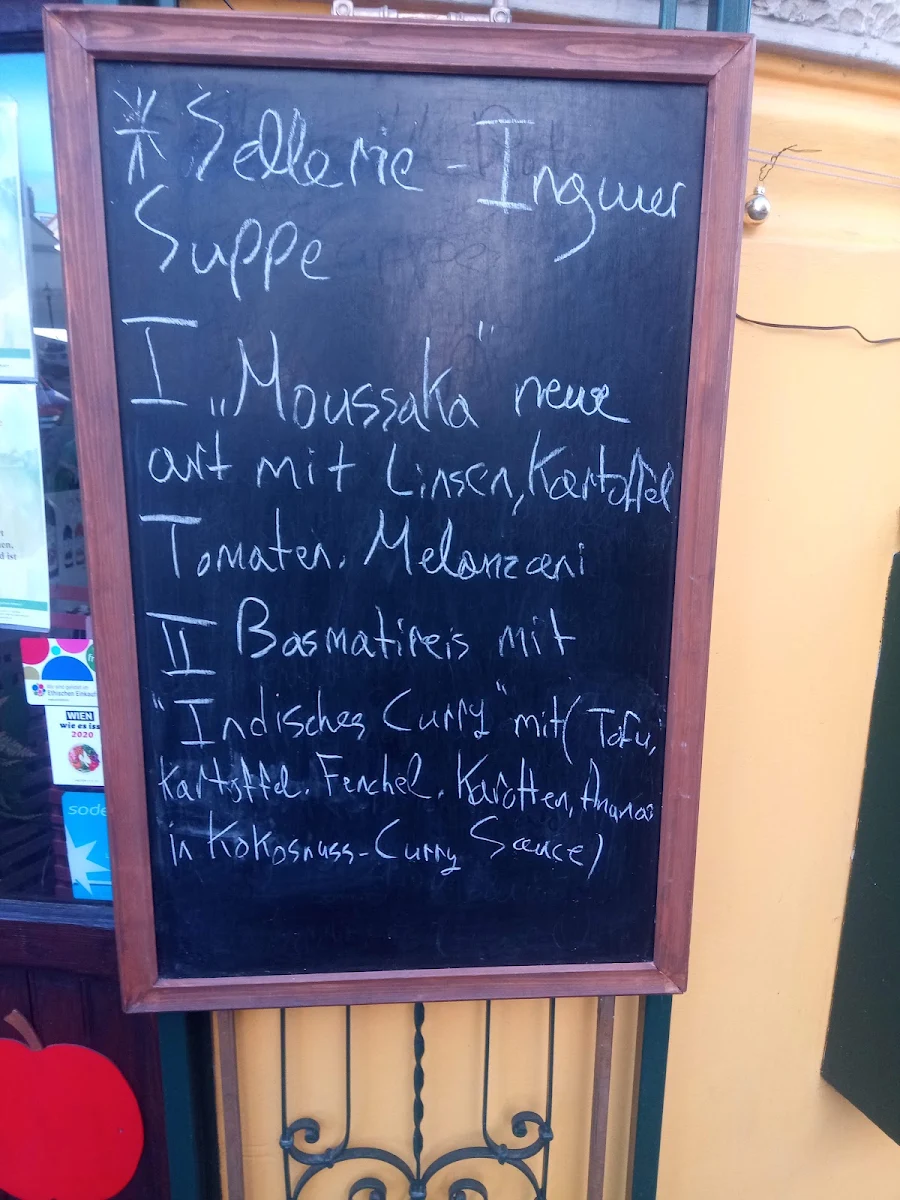 * Sellerie - Ingwer
Suppe
I „Moussaka" neue
art mit Linsen, Kartoffel
Tomaten. Melanzani
II Basmatireis mit
"Indisches Curry" mit (Tofu,
Kartoffel. Fenchel. Karotten, Ananas
in Kokosnuss-Curry Sauce)
Ethischen Einkauf
WIEN
wie es isst
2020
sode